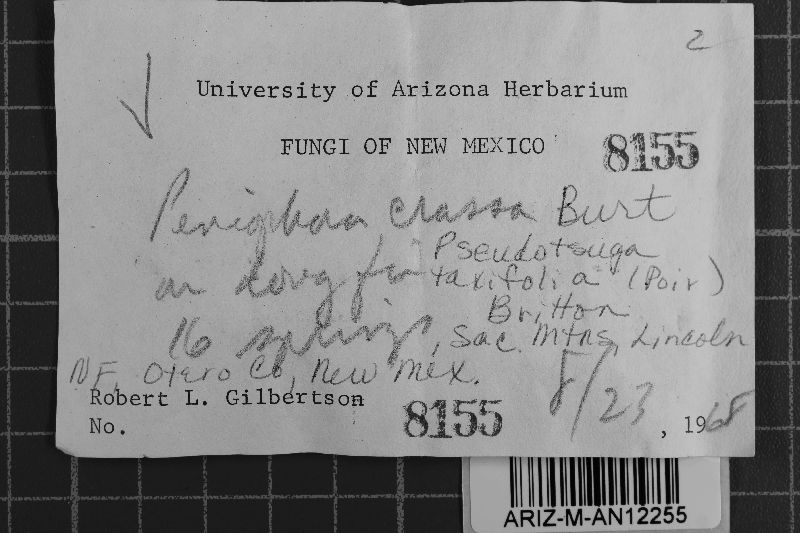 2
University of Arizona Herbarium
FUNGI OF NEW MEXICO 8155
Peniophora crassa Burt
on doug fir Pseudotsuga
taxifolia (Poir)
Britton
16 springs, Sac. Mtns, Lincoln
NF, Otero Co, New Mex.
Robert L. Gilbertson 8/23
No. 8155 , 1968
ARIZ-M-AN12255